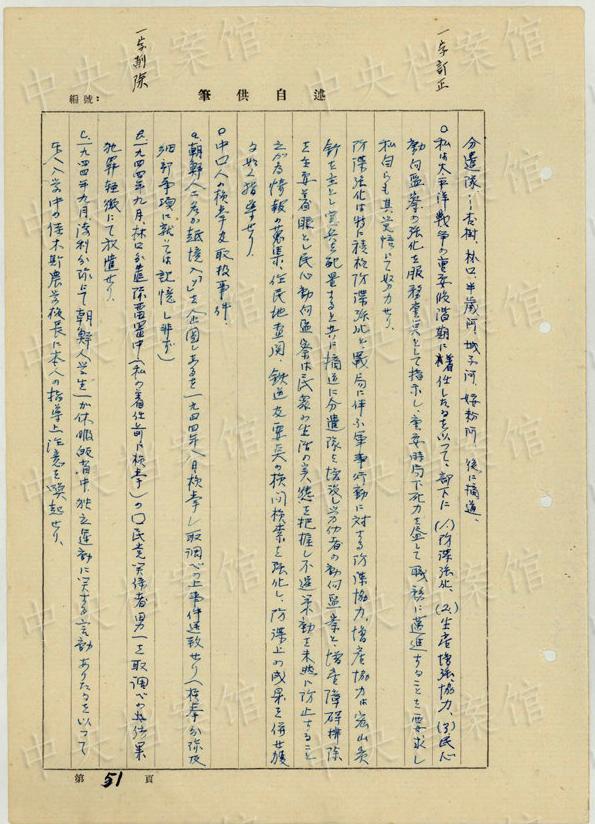 一字訂正
一字削除
自述供筆
編號：
分遣隊…杏樹、林口、半截河、城子河、綏粉河、後に滴道、
〇私は太平洋戦争の重要段階期に着任したるを以って、部下に(1)防諜強化、(2)生産増強協力、(3)民心
動向監察の強化を服務重点として指示し、重要時局下死力を盡して職務に邁進することを要求し
私自らも其覚悟にて努力せり。
防諜強化は特に積極防諜強化と戦局に伴ふ軍事行動に対する防諜協力、増産協力は炭山炭
鉱を主とし憲兵を配置すると共に滴道に分遣隊を増設し労働者の動向監察と増産障碍排除
を主要着眼とし民心動向監察は民衆の生活の実態を把握し不逞策動を未然に防止すること
之が為情報の蒐集、住民地査閲、鉄道及要点の検問検索を強化し、防諜上の成果を併せ獲
る如く指導せり。
〇中口人の検挙及取扱事件。
a.朝鮮人二名が越境入「ソ」を企図しあるを一九四四年八月検挙し取調べの上事件送致せり(検挙分隊及
細部事項に就いては記憶し非ず)
b.一九四四年九月、林口分遣隊留置中(私の着任前に検挙)の〇民党関係者男一を取調べの結果
犯罪軽微にて放遣せり、
c.一九四四年九月、勃利分隊にて朝鮮人学生一が休暇帰省中独立運動に関する言動ありたるを以って
本人入学中の佳木斯農学校長に本人の指導上注意を喚起せり、
第51頁
中央档案馆